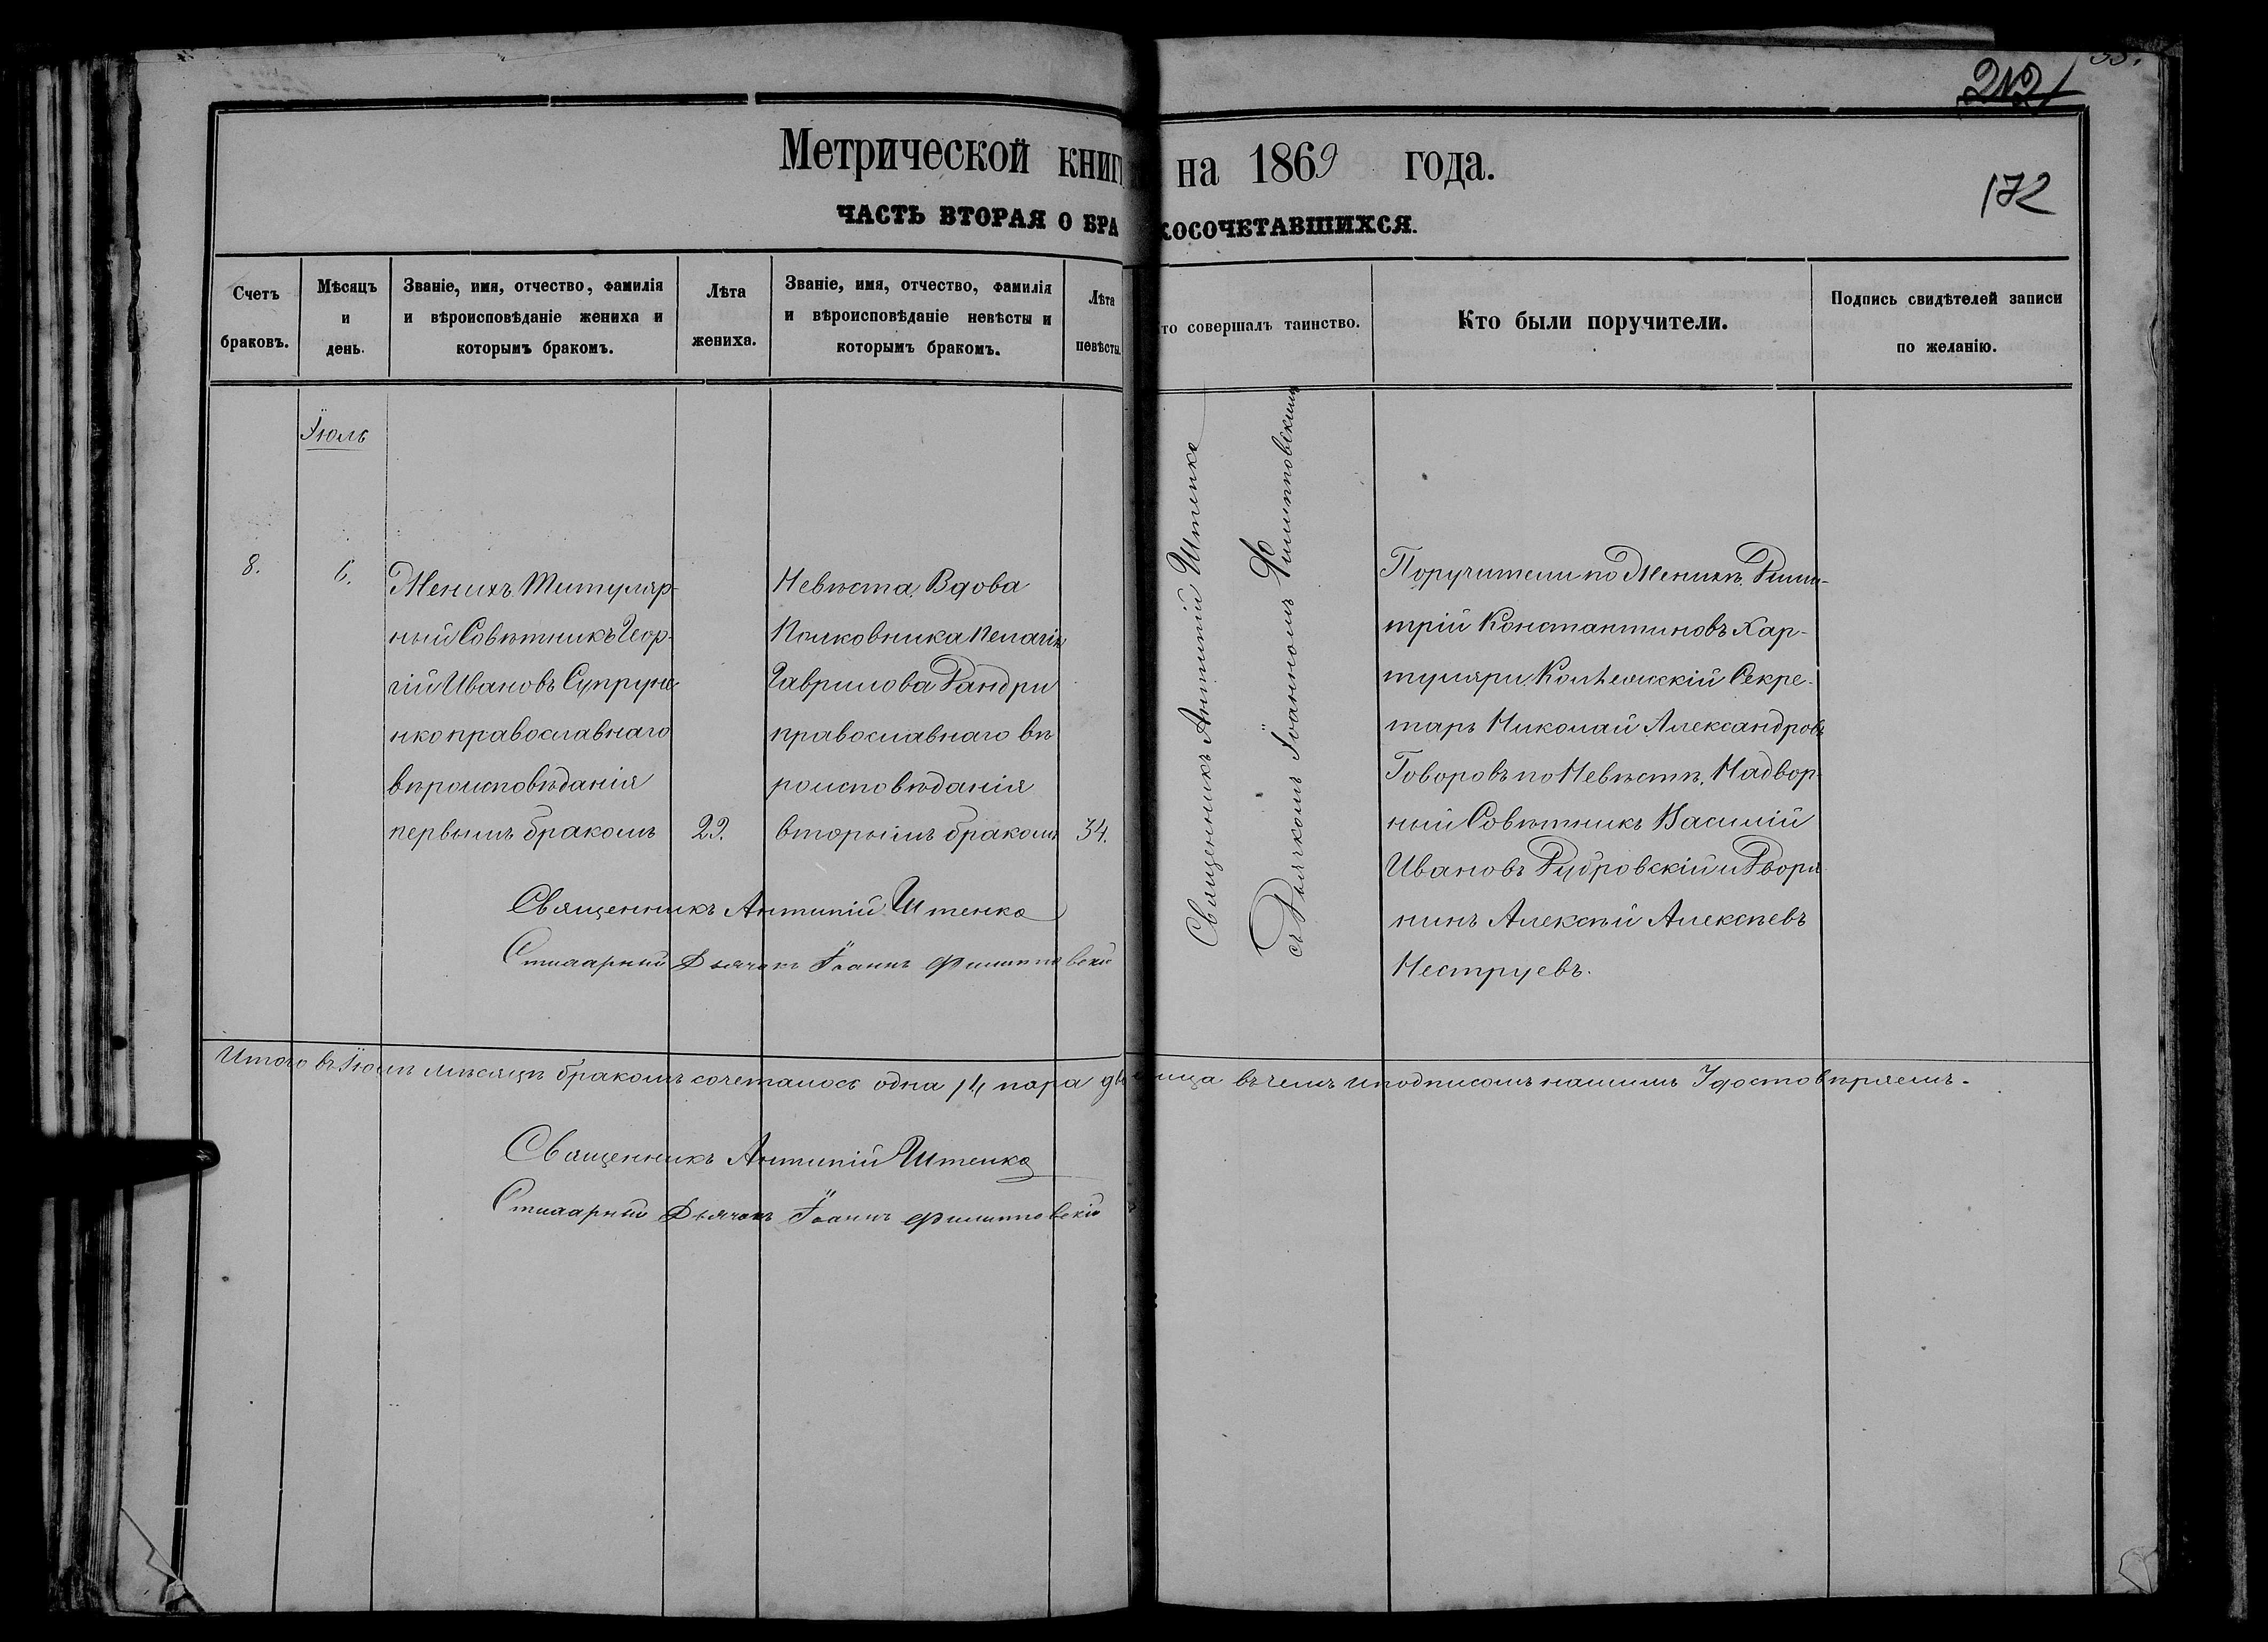 212
172
Метрической книг на 1869 года.
ЧАСТЬ ВТОРАЯ О БРАКОСОЧЕТАВШИХСЯ.
Счетъ браковъ.
Мѣсяцъ и день.
Званіе, имя, отчество, фамилія и вѣроисповѣданіе жениха и которымъ бракомъ.
Лѣта жениха.
Званіе, имя, отчество, фамилія и вѣроисповѣданіе невѣсты и которымъ бракомъ.
Лѣта невѣсты.
то совершалъ таинство.
Кто были поручители.
Подпись свидѣтелей записи по желанію.
Іюль
8.
6.
Женихъ Титуляр-
ный Совѣтникъ Геор-
гій Ивановъ Супруне
нко православнаго
вѣроисповѣданія
первымъ бракомъ
29.
Невѣста, Вдова
Полковника Пелагія
Гаврилова Дандри
православнаго вѣ
роисповѣданія
вторымъ бракомъ
34.
Священникъ Антипій Штенко
съ Дьячкомъ Іоанномъ Филипповскимъ
Поручители по Женихѣ. Дими-
трій Константиновъ Хар-
туляри Коллежскій Секре-
тарь Николай Александровъ
Говоровъ по Невѣстѣ, Надвор-
ный Совѣтникъ Василій
Ивановъ Дубровскій и Дворя
нинъ Алексѣй Алексѣевъ
Неструевъ.
Священникъ Антипій Штенко
Стихарный Дьячекъ Іоаннъ Филипповскій
Итого въ Іюлѣ мѣсяцѣ бракомъ сочеталось одна /1/ пара лица въ чемъ и подписомъ нашимъ Удостовѣряемъ.
Священникъ Антипій Штенко
Стихарный Дьячекъ Іоаннъ Филипповскій